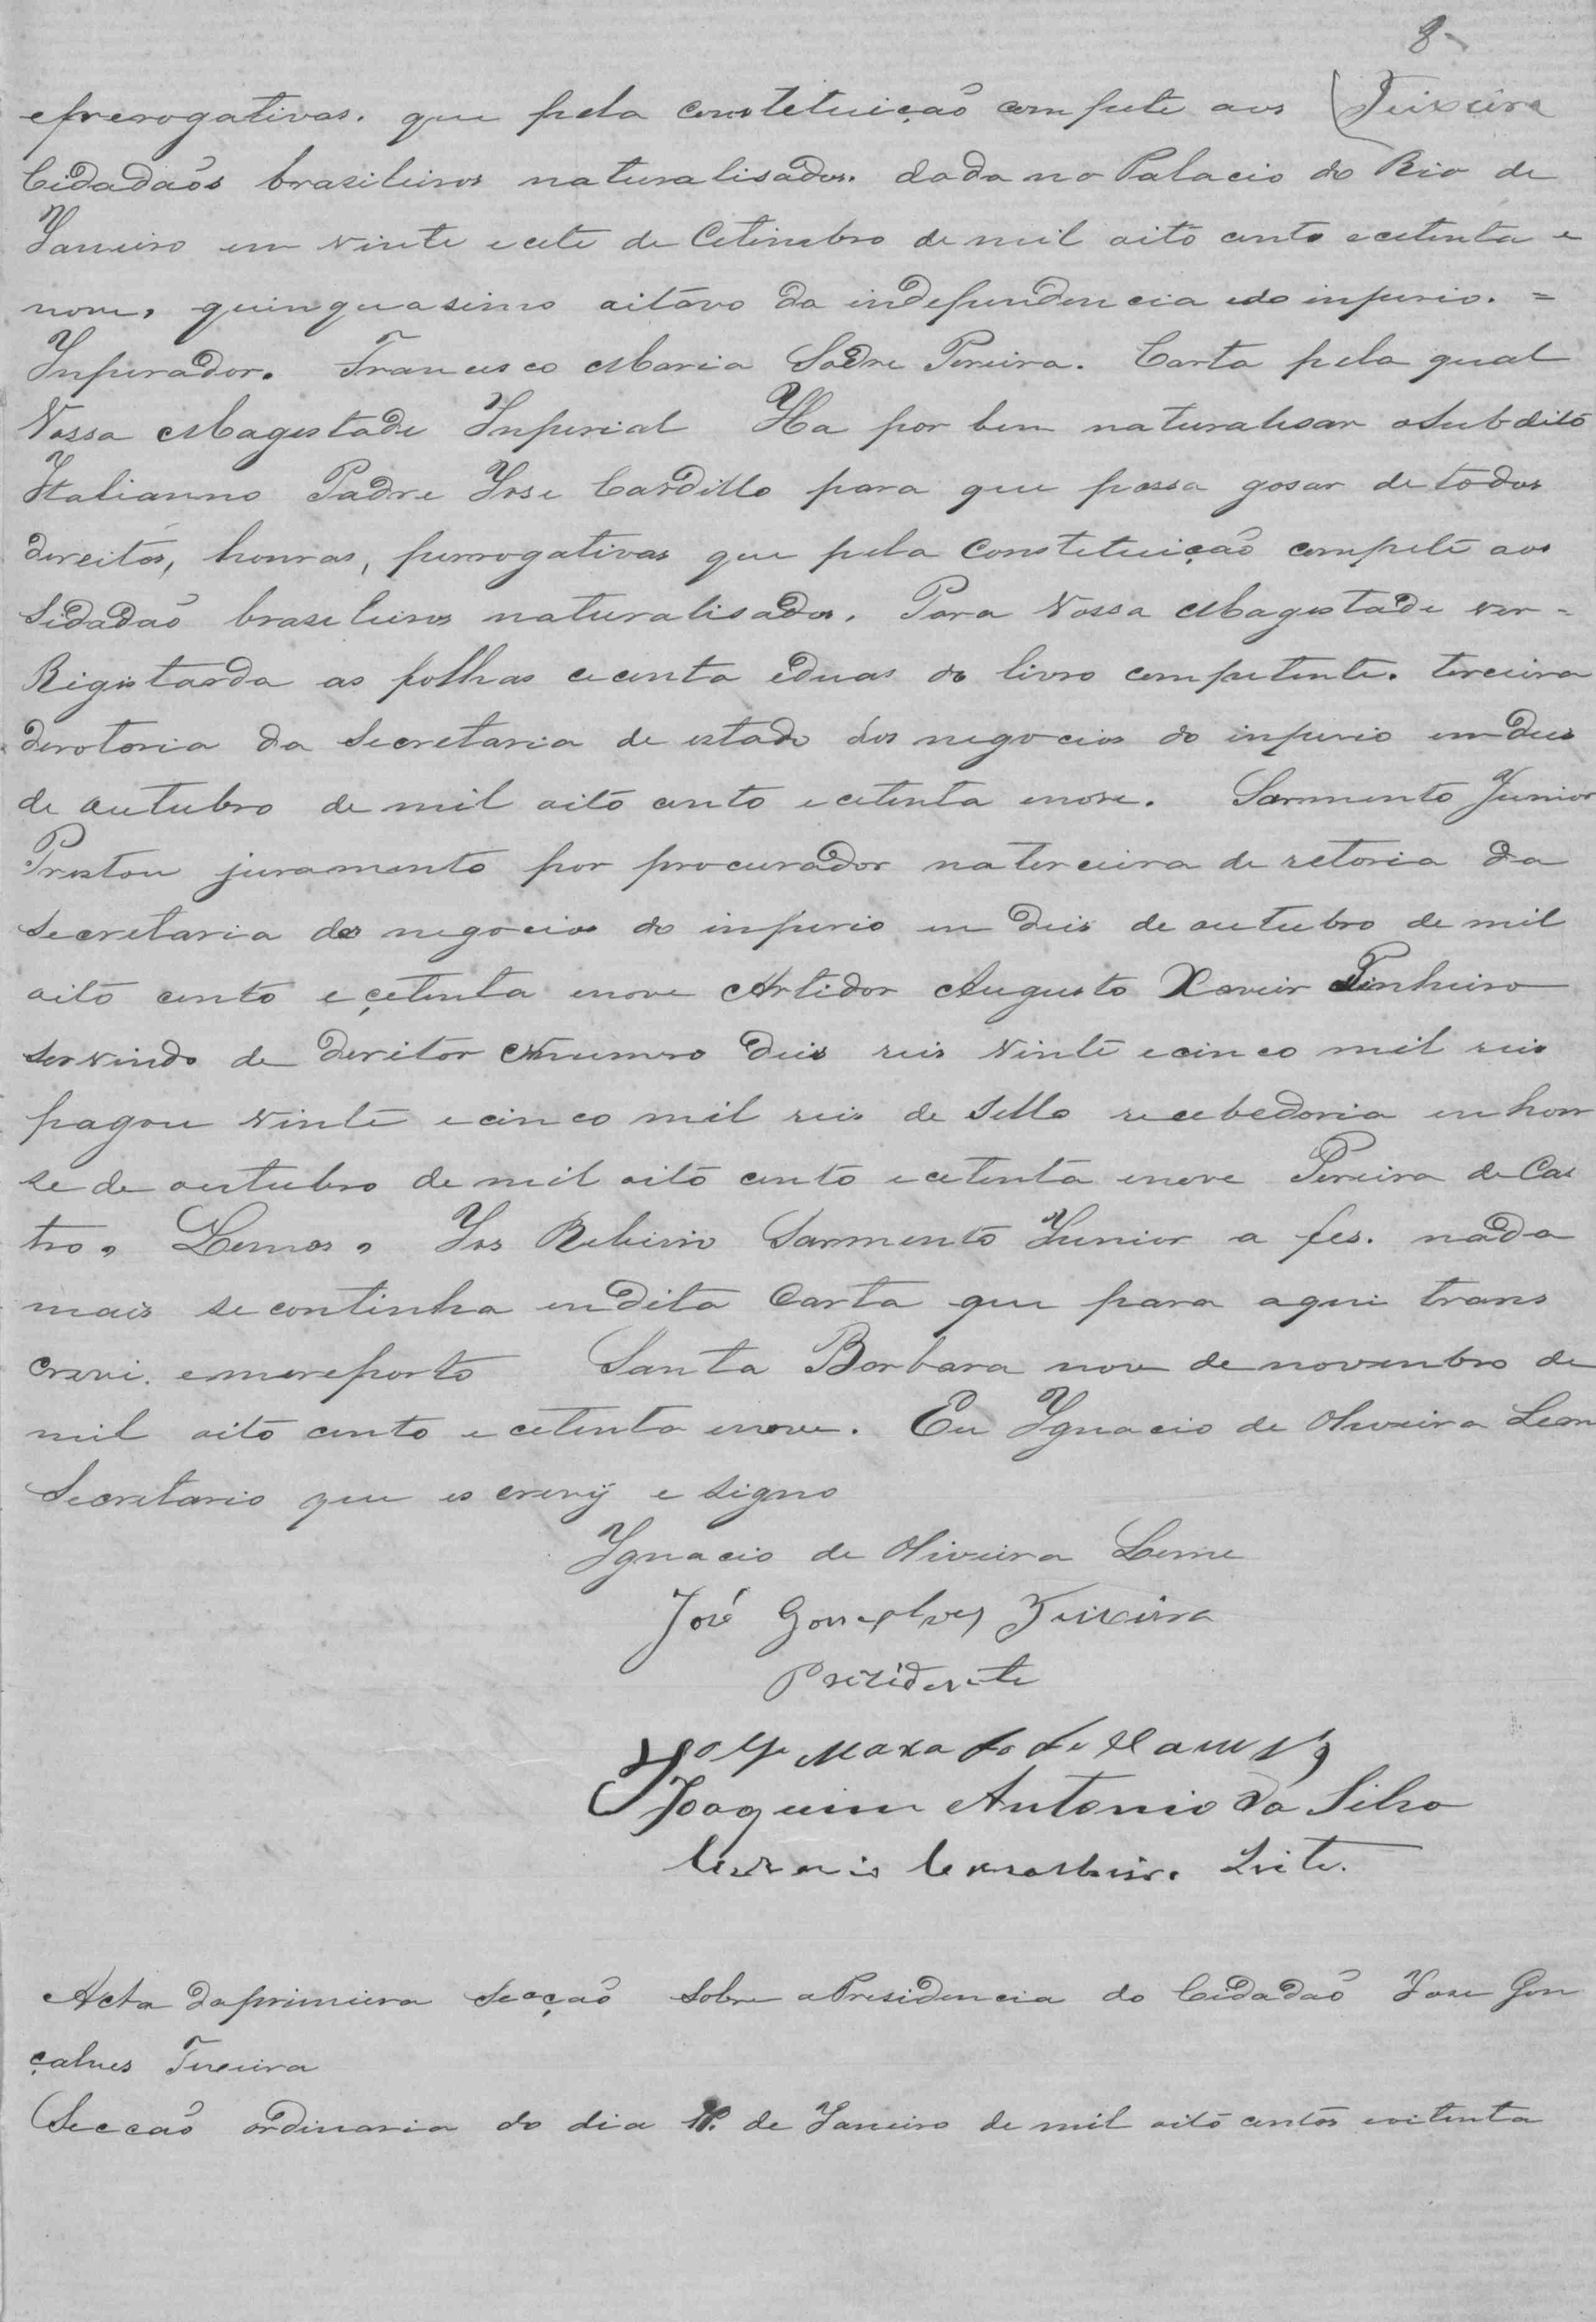 8
eprerogativas. que pela constetuiçaõ compete aos Teixeira
Cidadaõs brasileiros naturalisados. dada no Palacio do Rio de
Janeiro em vinte e cete de Cetimbro de mil oito cento e cetenta e
nove, quinquasimo oitavo da independencia e do inperio. =
Inperador. Francisco Maria Sodre Pereira. Carta pela qual
Vossa Magestade Inperial Ha por bem naturalisar o Subdito
Italianno Padre Jose Cardillo para que possa gosar de todos
direitos, honras, perrogativas que pela Constetuiçaõ compete aos
Sidadaõ brasileiros naturalisados. Para Vossa Magestade ver-
Rigistarda as folhas cecenta e duas do livro competente. terceira
derotoria da Secretaria de estado dos negocios do inperio em deis
de autubro de mil oito cento e cetenta e nove. Sarmento Junior
Prestou juramento por procurador na terceira deretoria da
Secretaria dos negocios do inperio em deis de outubro de mil
oito cento e çetenta e nove Artidor Augusto Xavier Pinheiro
servindo de deritor numero deis reis vinte e cinco mil reis
pagou vinte e cinco mil reis de Sello recebedoria em hon
se de outubro de mil oito cento e cetenta e nove Pereira de Cas
tro, Lemos, Jos Ribeiro Sarmento Junior a fes. nada
mais se continha em dita Carta que para aqui trans
crevi. e me reporto Santa Barbara nove de novembro de
mil oito cento e cetenta e nove. Eu Ygnacio de Oliveira Leme
Secretario que escrevij e signo
Ygnacio de Oliveira Leme
José Gonçalves Teixeira
Prezidente
Joze Maxado de Campos
Joaquim Antonio da Silva
Leite.
Acta da primeira Secçaõ Sobre a Presidencia do Cidadaõ Jose Gon
çalves Teixeira
Secçaõ ordinaria do dia de Janeiro de mil oito centos e oitenta